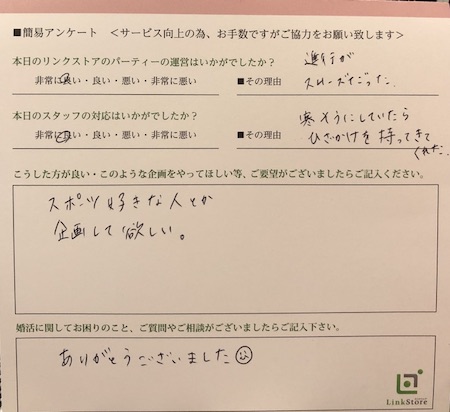 ■簡易アンケート ＜サービス向上の為、お手数ですがご協力をお願い致します＞
本日のリンクストアのパーティーの運営はいかがでしたか？
進行が
非常に良い・良い・悪い・非常に悪い
■その理由
スムーズだった。
本日のスタッフの対応はいかがでしたか？
寒そうにしていたら
非常に良い・良い・悪い・非常に悪い
■その理由
ひざかけを持ってきて
くれた。
こうした方が良い・このような企画をやってほしい等、ご要望がございましたらご記入ください。
スポーツ好きな人とか
企画して欲しい。
婚活に関してお困りのこと、ご質問やご相談がございましたらご記入下さい。
ありがとうございました
LinkStore